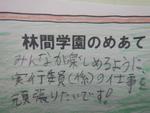 林間学園のめあて
みんなが楽しめるように、
実行委員(係)の仕事を
頑張りたいです!